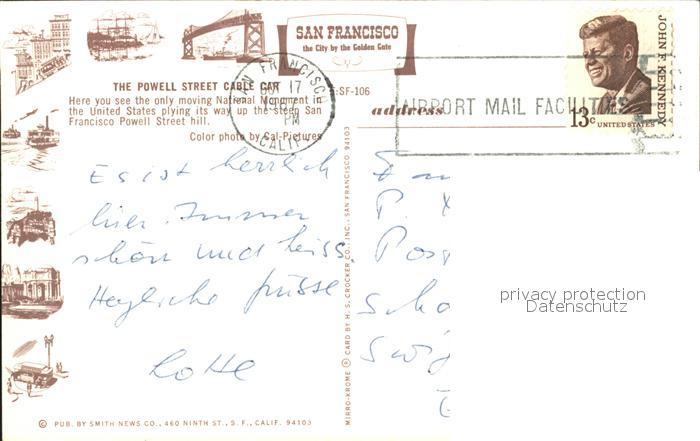 SAN FRANCISCO
the City by the Golden Gate
THE POWELL STREET CABLE CAR
Here you see the only moving National Monument in
the United States plying its way up the steep San
Francisco Powell Street hill.
Color photo by Cal-Pictures
SF-106
SAN FRANCISCO
17
PM
CALIF
AIRPORT MAIL FACILITIES
JOHN F. KENNEDY
13c
UNITED STATES
address
Es ist herrlich
hier. Immer
schön und heiss.
Herzliche Grüsse
Lotte
P.
MIRRO-KROME ® CARD BY H. S. CROCKER CO., INC., SAN FRANCISCO, CA. 94103
privacy protection
Datenschutz
© PUB. BY SMITH NEWS CO., 460 NINTH ST., S. F., CALIF. 94103